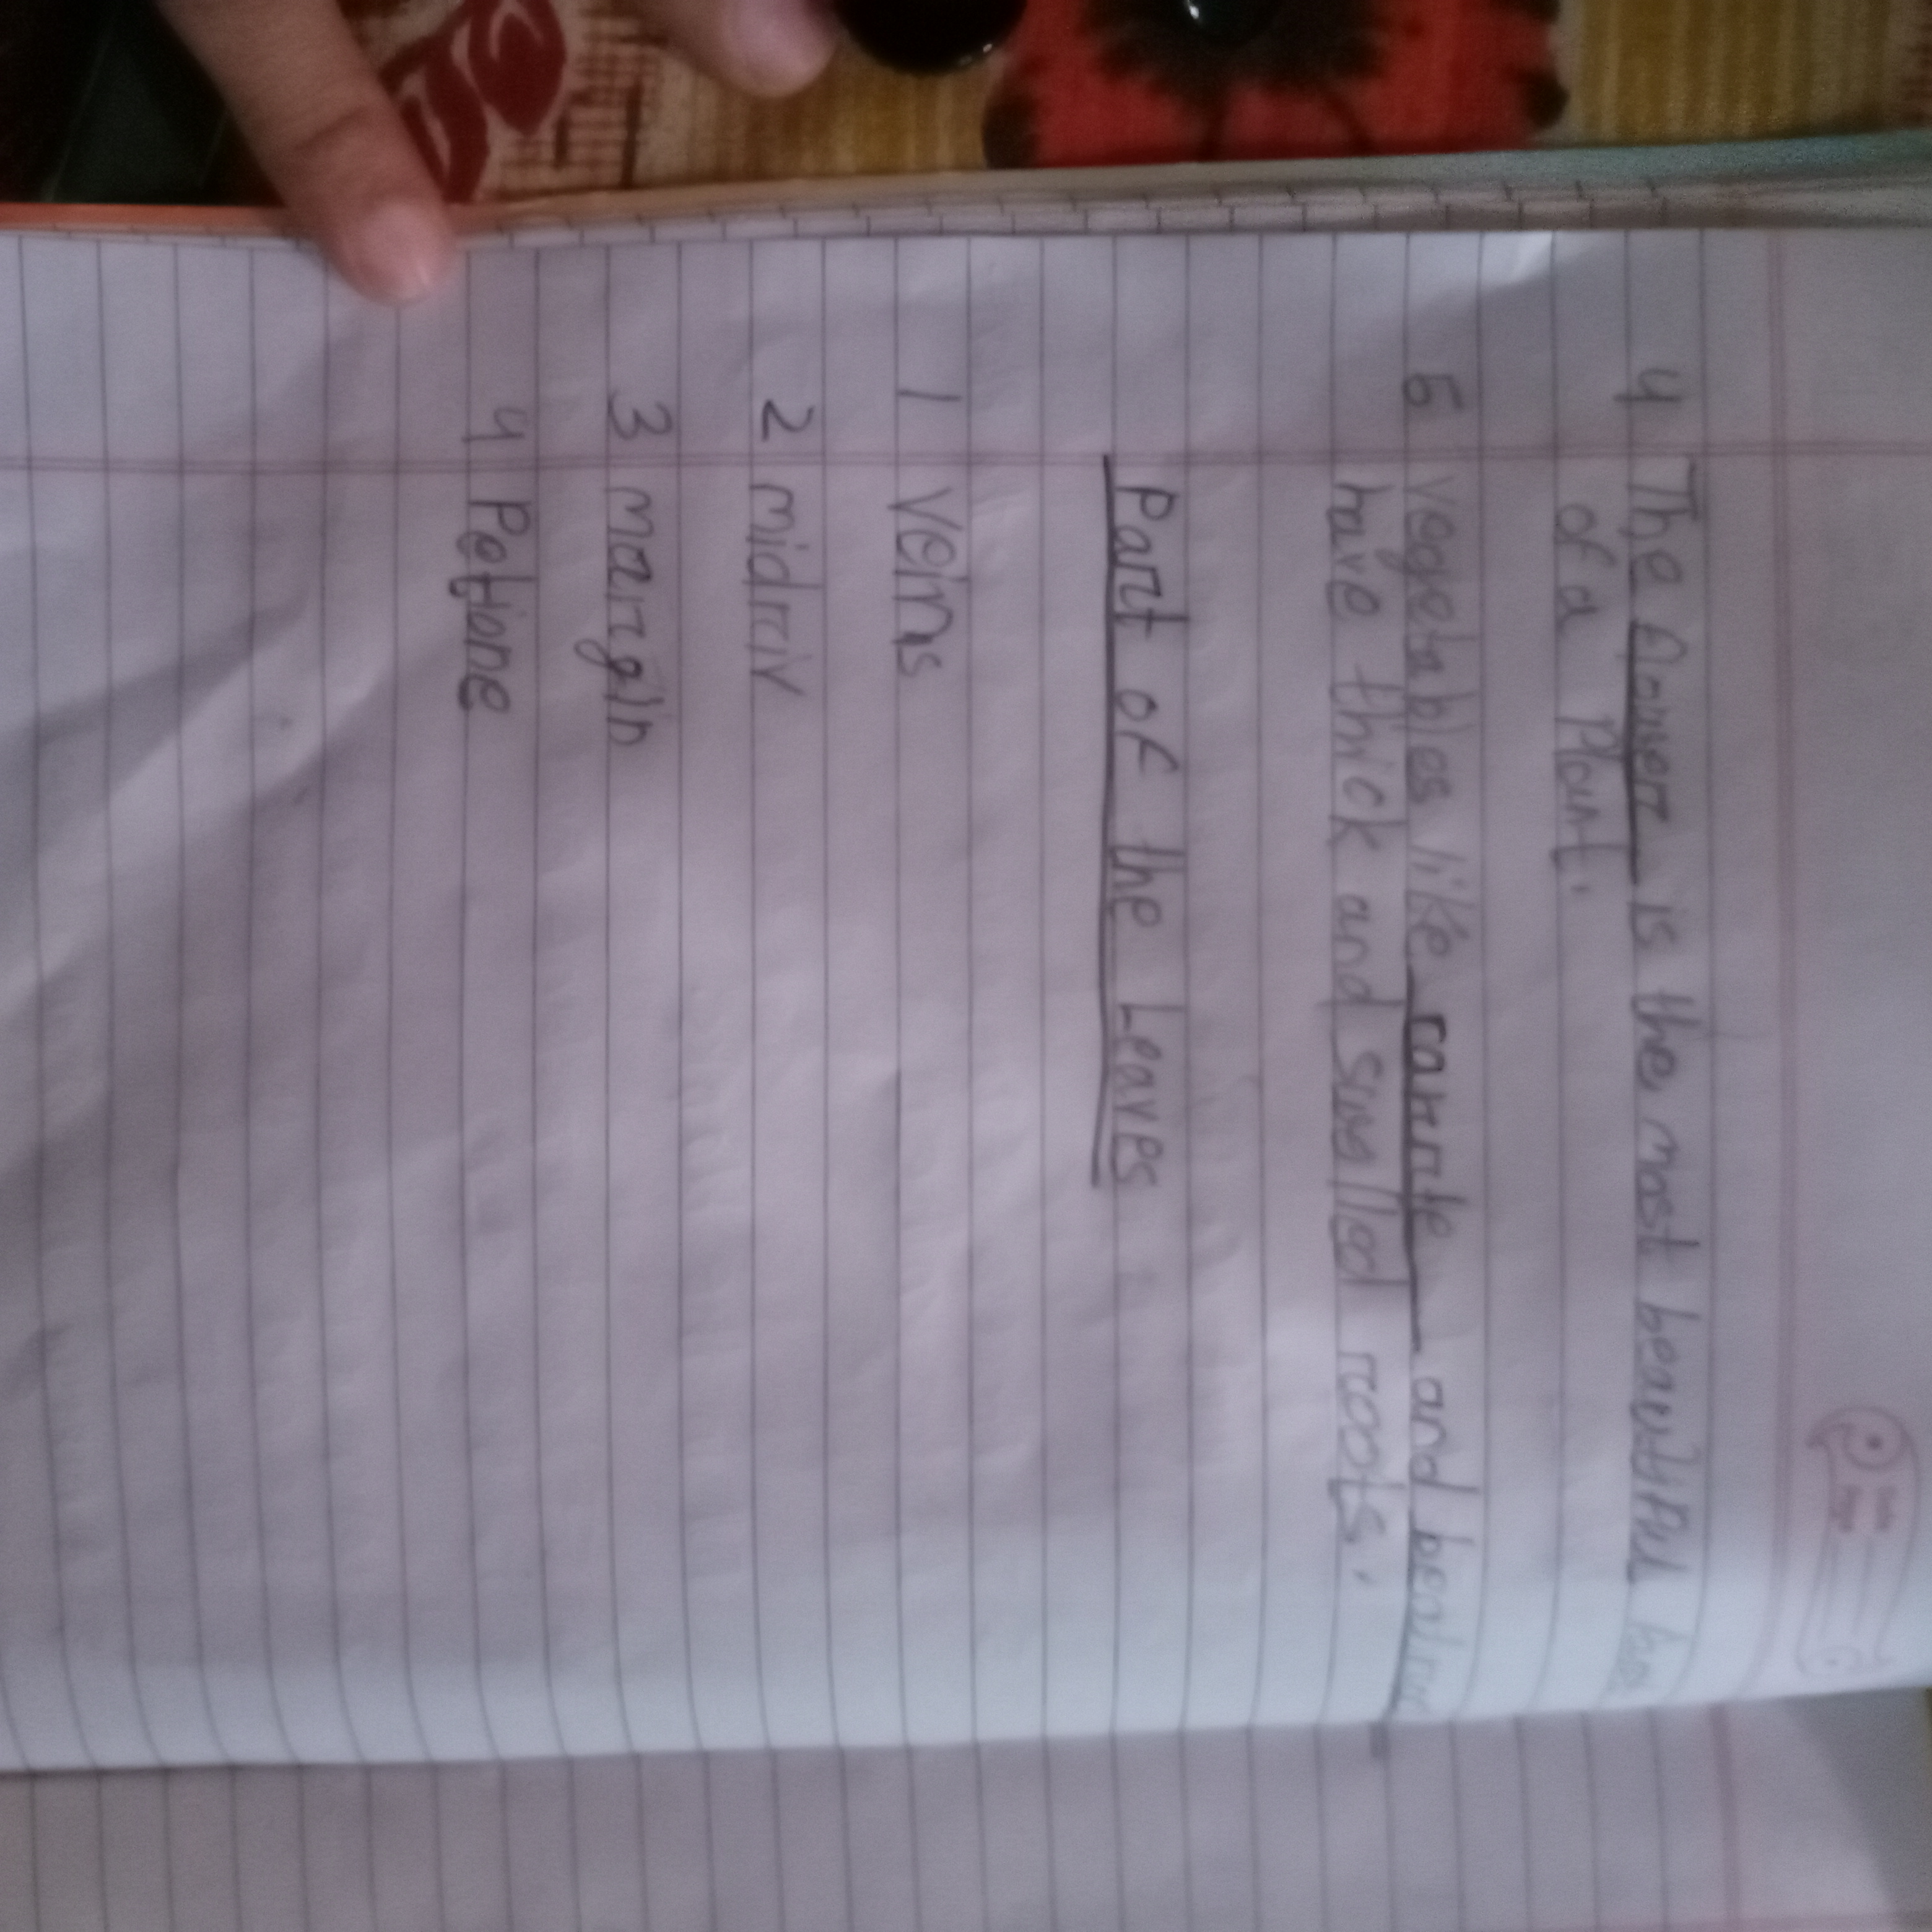 4 The flower is the most beautiful
of a Plant.
5 vegetables like carrte and
have thick and swalled roots.
Part of the Leaves
1 Veins
2 midrriv
3 margin
4 Petione